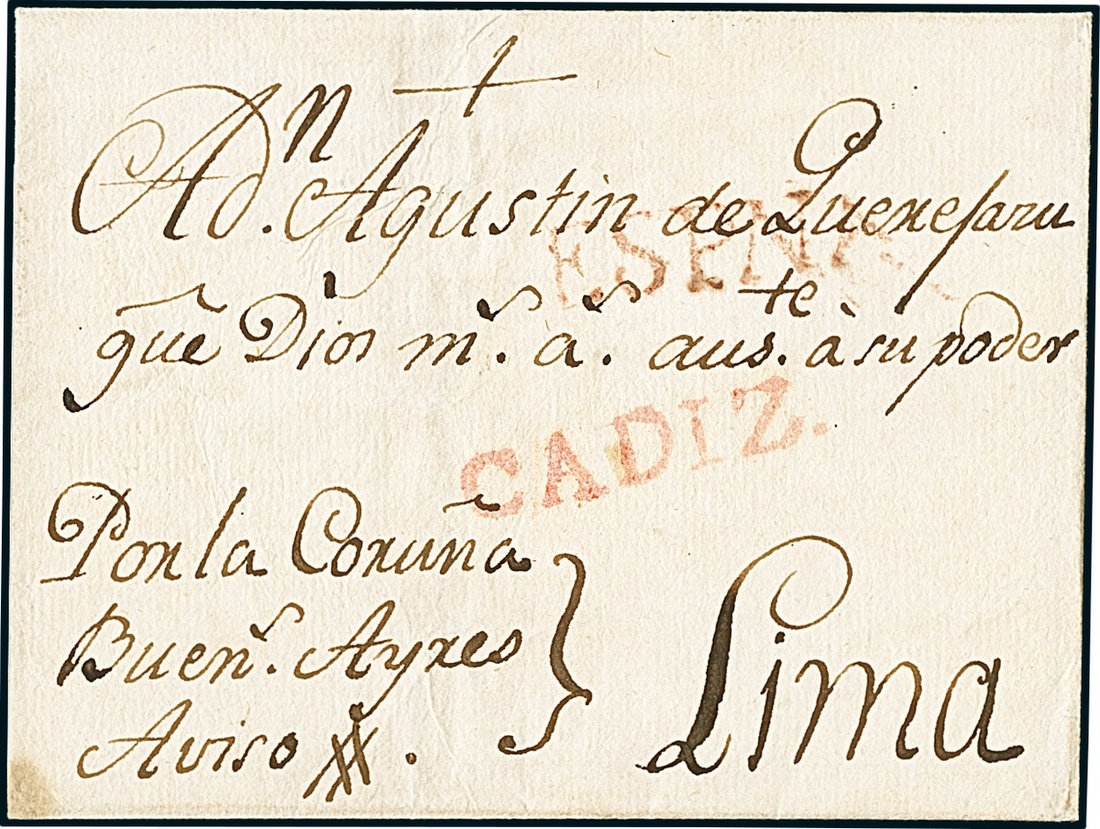 A Dn. Agustin de Querejazu
gue Dios ms. as. auste. à su poder
ESPAÑA
CADIZ.
Por la Coruña
Buens. Ayres
Aviso
Lima